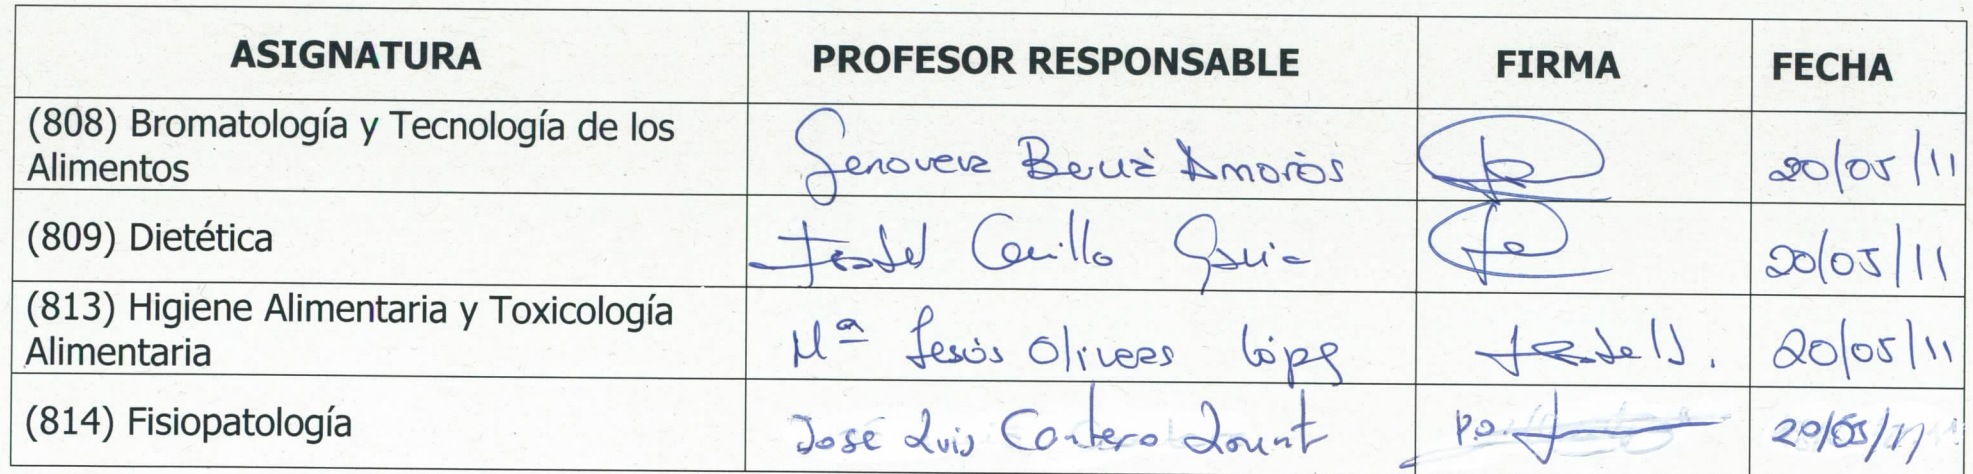 ASIGNATURA PROFESOR RESPONSABLE FIRMA FECHA
(808) Bromatología y Tecnología de los
Alimentos
Genoveva Berná Amorós 20/05/11
(809) Dietética
Isabel Carrillo García 20/05/11
(813) Higiene Alimentaria y Toxicología
Alimentaria
Mª Jesús Oliveras López 20/05/11
(814) Fisiopatología
José Luis Cantero P.O. 20/05/11